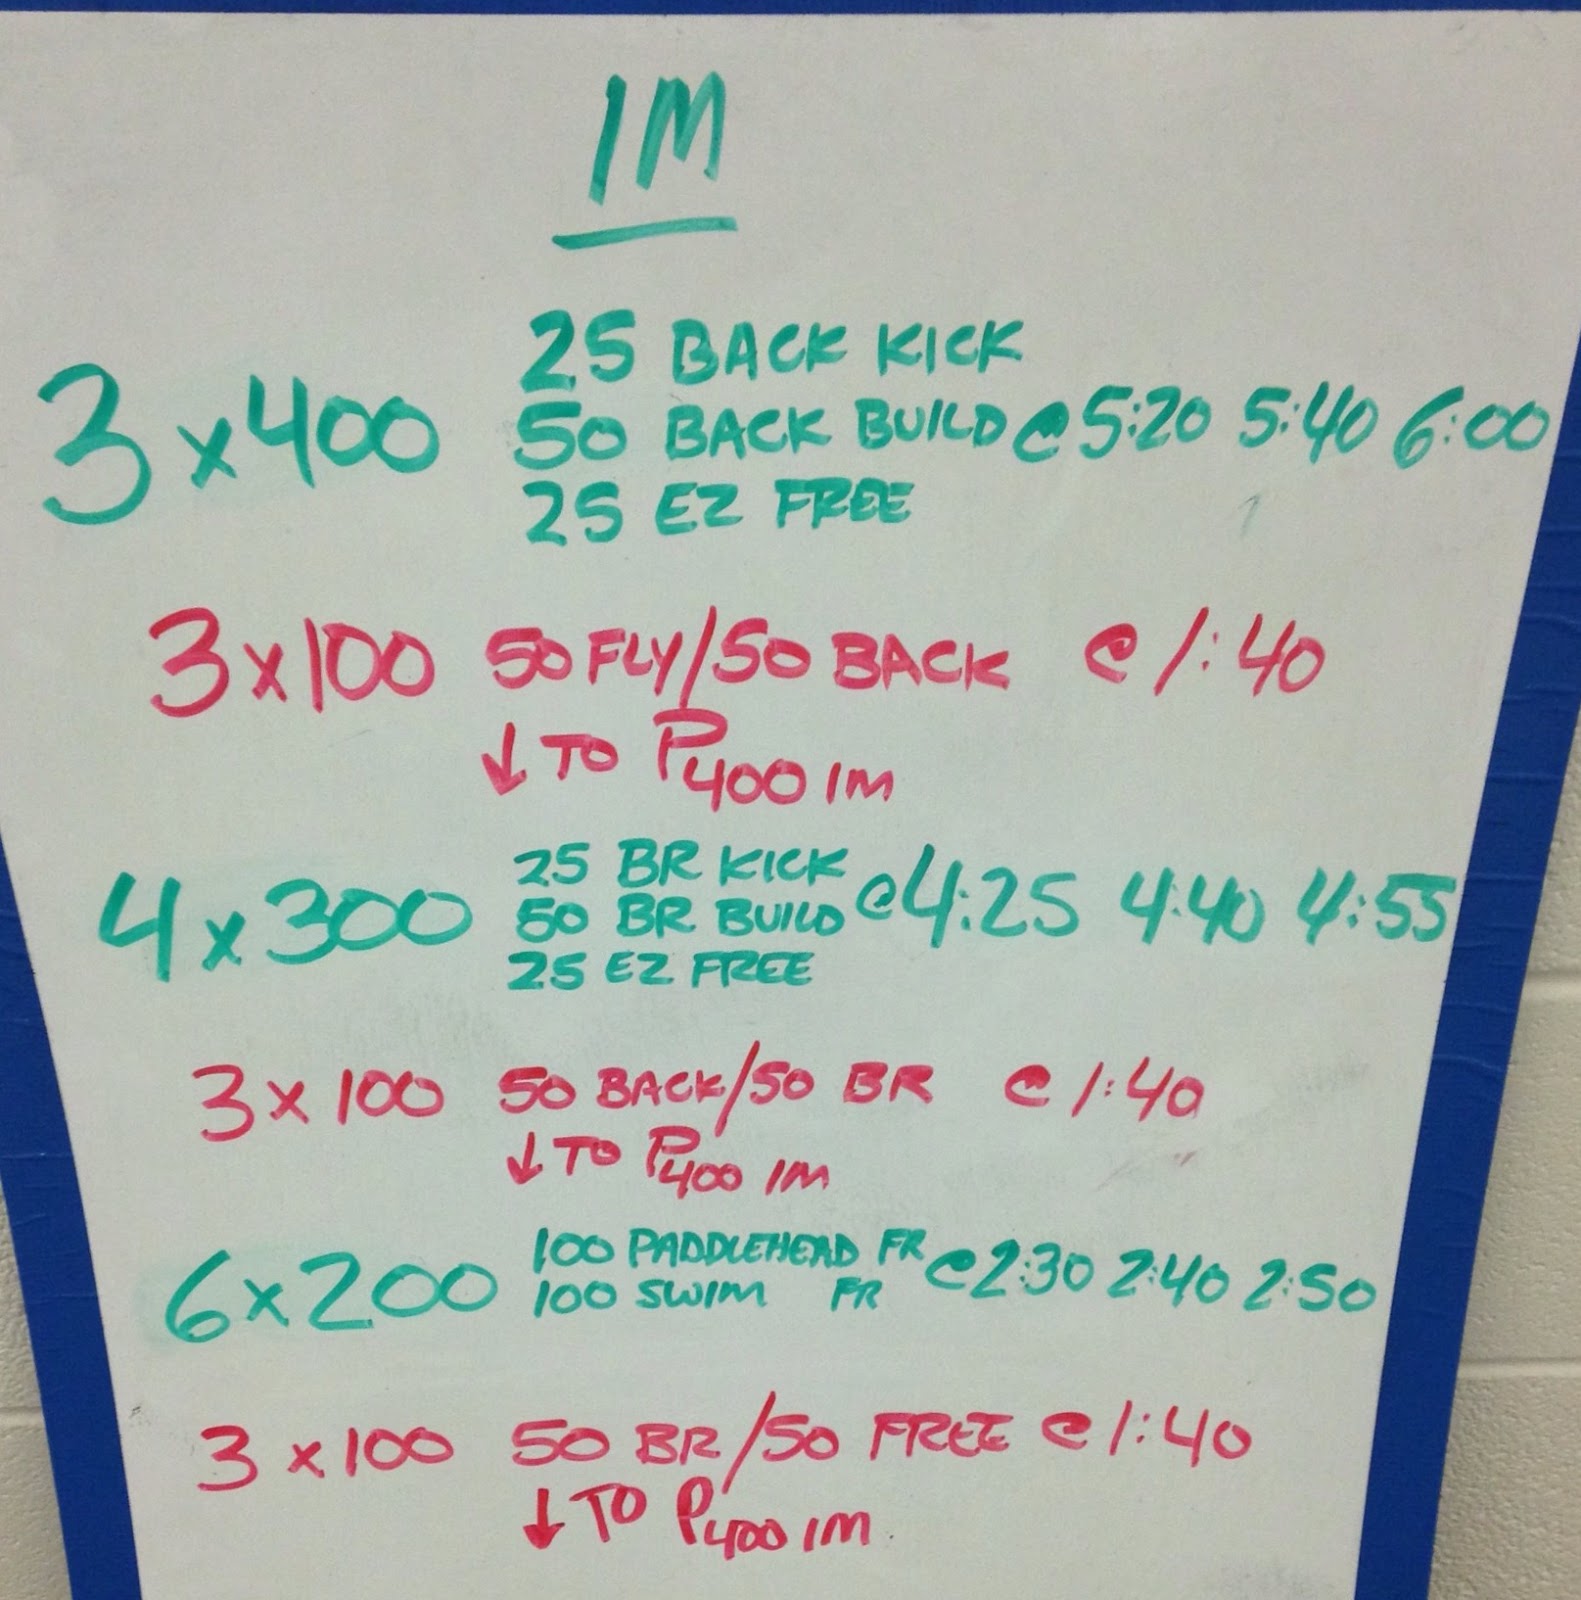 IM
25 BACK KICK
3 x 400 50 BACK BUILD @ 5:20 5:40 6:00
25 EZ FREE
3 x 100 50 FLY/50 BACK @ 1:40
↓ TO P400 IM
25 BR KICK
4 x 300 50 BR BUILD @ 4:25 4:40 4:55
25 EZ FREE
3 x 100 50 BACK/50 BR @ 1:40
↓ TO P400 IM
100 PADDLEHEAD FR
6 x 200 @ 2:30 2:40 2:50
100 SWIM FR
3 x 100 50 BR/50 FREE @ 1:40
↓ TO P400 IM